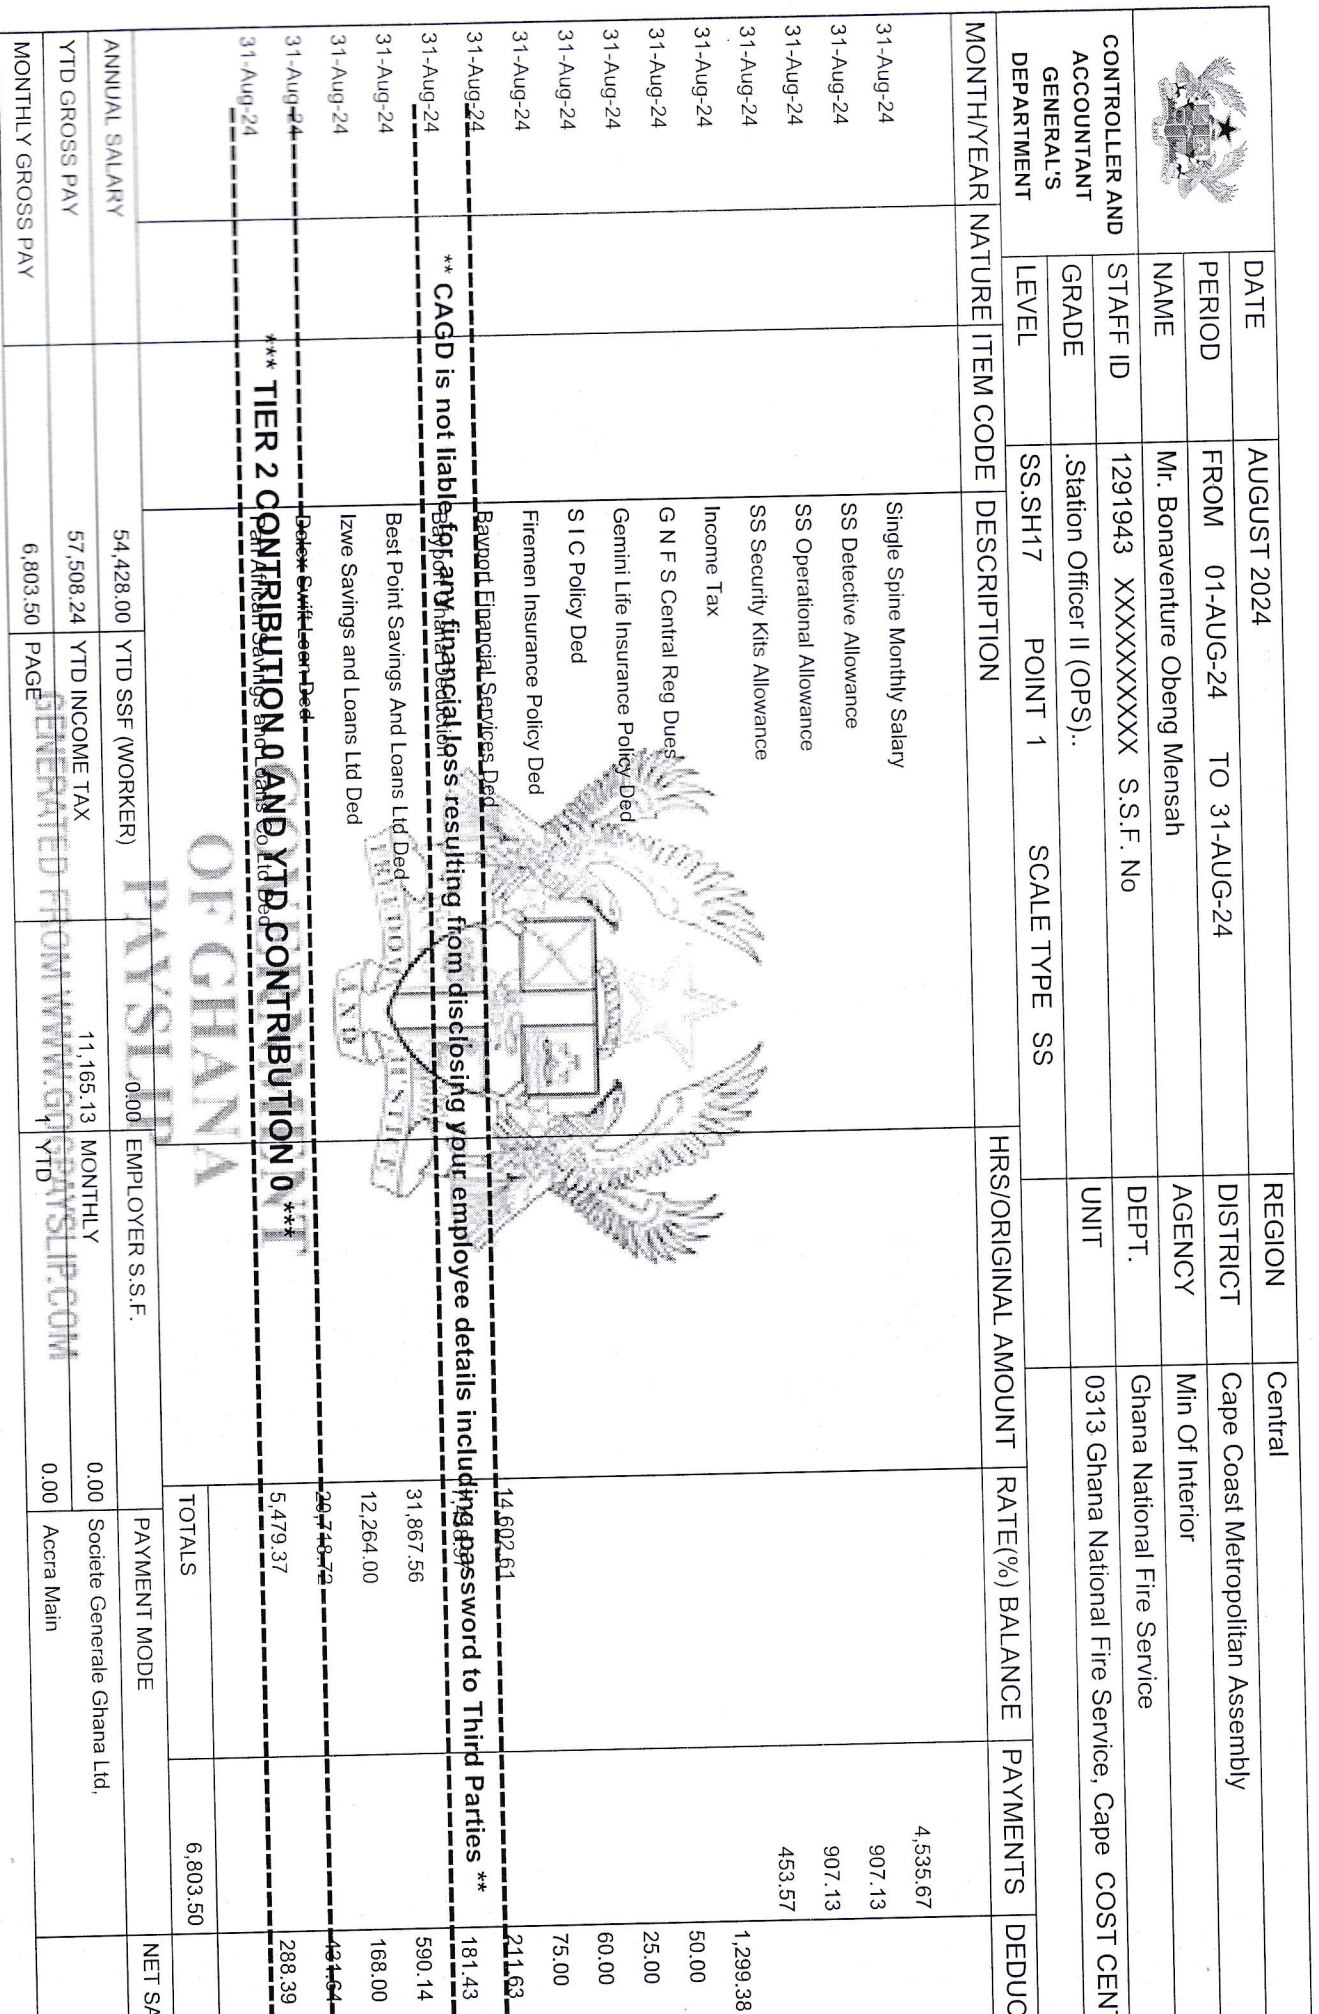 CONTROLLER AND
ACCOUNTANT
GENERAL'S
DEPARTMENT
DATE AUGUST 2024 REGION Central
PERIOD FROM 01-AUG-24 TO 31-AUG-24 DISTRICT Cape Coast Metropolitan Assembly
NAME Mr. Bonaventure Obeng Mensah AGENCY Min Of Interior
STAFF ID 1291943 XXXXXXXXXX S.S.F. No DEPT. Ghana National Fire Service
GRADE .Station Officer II (OPS).. UNIT 0313 Ghana National Fire Service, Cape COST CENT
LEVEL SS.SH17 POINT 1 SCALE TYPE SS
MONTH/YEAR NATURE ITEM CODE DESCRIPTION HRS/ORIGINAL AMOUNT RATE(%) BALANCE PAYMENTS DEDUC
31-Aug-24 Single Spine Monthly Salary 4,535.67
31-Aug-24 SS Detective Allowance 907.13
31-Aug-24 SS Operational Allowance 907.13
31-Aug-24 SS Security Kits Allowance 453.57
31-Aug-24 Income Tax 1,299.38
31-Aug-24 G N F S Central Reg Dues 50.00
31-Aug-24 Gemini Life Insurance Policy Ded 25.00
31-Aug-24 S I C Policy Ded 60.00
31-Aug-24 Firemen Insurance Policy Ded 75.00
31-Aug-24 Bayport Financial Services Ded 14,602.61 211.63
31-Aug-24 Bayport Ghana Deduction 181.43
** CAGD is not liable for any financial loss resulting from disclosing your employee details including password to Third Parties **
31-Aug-24 Best Point Savings And Loans Ltd Ded 31,867.56 590.14
31-Aug-24 Izwe Savings and Loans Ltd Ded 12,264.00 168.00
31-Aug-24 Dalex Swift Loan Ded 20,718.72 431.64
31-Aug-24 Pan African Savings and Loans Co Ltd Ded 5,479.37 288.39
*** TIER 2 CONTRIBUTION 0 AND YTD CONTRIBUTION 0 ***
FREEDOM AND JUSTICE
GOVERNMENT
OF GHANA
PAYSLIP
TOTALS 6,803.50
ANNUAL SALARY 54,428.00 YTD SSF (WORKER) 0.00 EMPLOYER S.S.F. PAYMENT MODE NET SA
YTD GROSS PAY 57,508.24 YTD INCOME TAX 11,165.13 MONTHLY 0.00 Societe Generale Ghana Ltd,
MONTHLY GROSS PAY 6,803.50 PAGE 1 YTD 0.00 Accra Main
GENERATED FROM WWW.GOGPAYSLIP.COM